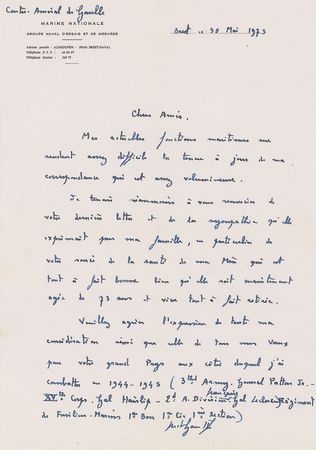 Contre-Amiral de Gaulle
MARINE NATIONALE
GROUPE NAVAL D'ESSAIS ET DE MESURES
Brest le 30 Mai 1973
Adresse postale :
29240 BREST-NAVAL
Téléphone P.T.T. :
Téléphone interne :
Chers Amis,
Mes actuelles fonctions maritimes me
rendent assez difficile la tenue à jour de ma
correspondance qui est assez volumineuse.
Je tenais néanmoins à vous remercier de
votre dernière lettre et de la sympathie qu'elle
exprimait pour ma famille, en particulier de
votre souci de la santé de ma Mère qui est
tout à fait bonne bien qu'elle soit maintenant
agée de 73 ans et vive tout à fait retirée.
Veuillez agréer l'expression de toute ma
considération ainsi que celle de tous mes vœux
pour votre grand Pays aux côtés duquel j'ai
combattu en 1944-1945 (3rd Army General Patton Jr. -
XVth Corps. Gal Haislip - 2d A. Division française Gal Leclerc, Régiment
de Fusiliers-Marins 1er Bon 1ère Cie 1ère section)